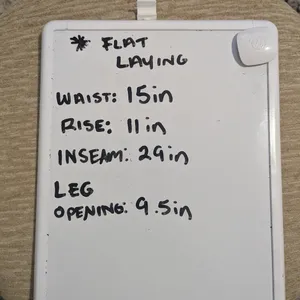 * FLAT
LAYING
WAIST: 15in
RISE: 11in
INSEAM: 29in
LEG
OPENING: 9.5in